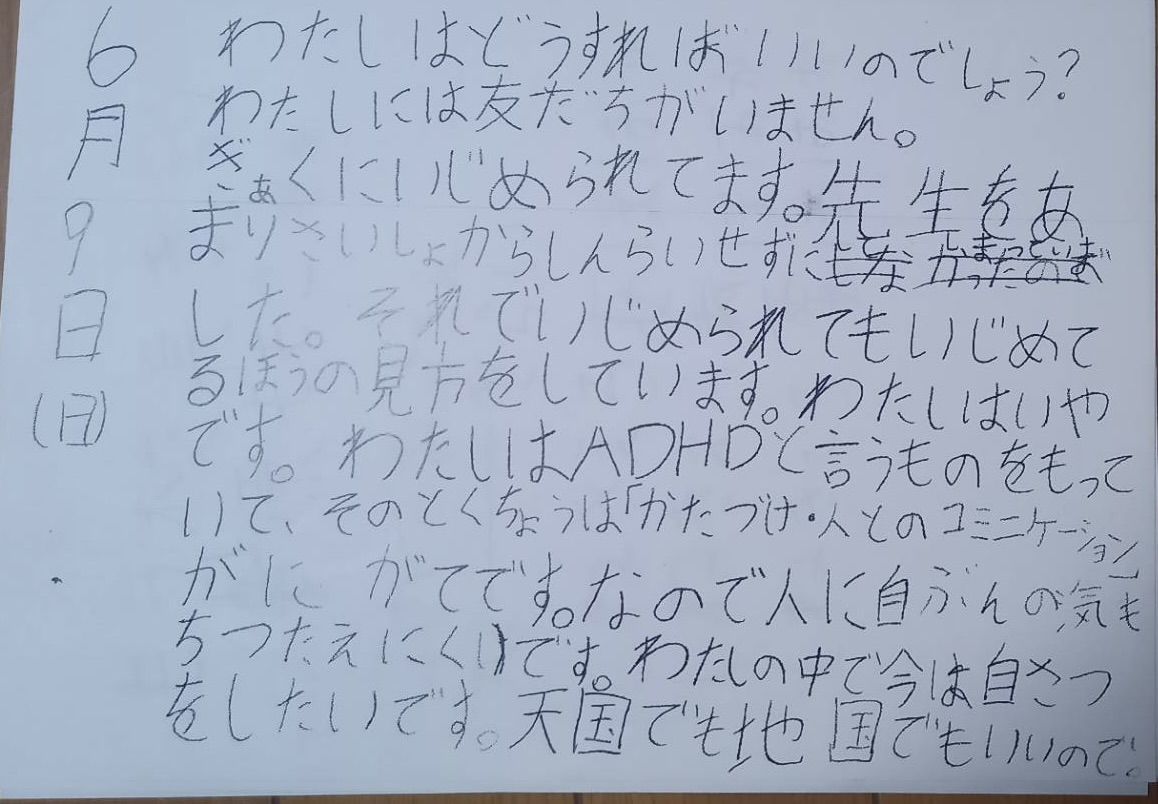 6月9日(日)
わたしはどうすればいいのでしょう?
わたしには友だちがいません。
ぎぁくにいじめられてます。先生をあ
まりさいしょからしんらいせずに
した。それでいじめられてもいじめて
るほうの見方をしています。わたしはいや
です。わたしはADHDと言うものをもって
いて、そのとくちょうは「かたづけ・人とのコミニケーション」
がにがてです。なので人に自ぶんの気も
ちつたえにくいです。わたしの中で今は自さつ
をしたいです。天国でも地国でもいいので。